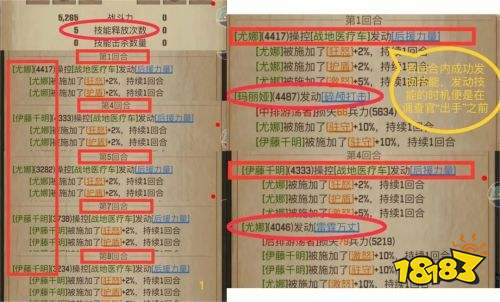 5,265 战斗力
5 技能释放次数
0 技能击杀数量
第1回合
[尤娜](4417)操控[战地医疗车]发动[后援力量]
[尤娜]被施加了[狂怒]+2%，持续1回合
[尤娜]被施加了[护盾]+2%，持续1回合
第4回合
[伊藤千明](4333)操控[战地医疗车]发动[后援力量]
[伊藤千明]被施加了[狂怒]+2%，持续1回合
[伊藤千明]被施加了[护盾]+2%，持续1回合
第5回合
[尤娜](3282)操控[战地医疗车]发动[后援力量]
[尤娜]被施加了[狂怒]+2%，持续1回合
[尤娜]被施加了[护盾]+2%，持续1回合
第7回合
[伊藤千明](3738)操控[战地医疗车]发动[后援力量]
[伊藤千明]被施加了[狂怒]+2%，持续1回合
[伊藤千明]被施加了[护盾]+2%，持续1回合
第8回合
[伊藤千明](3234)操控[战地医疗车]发动[后援力量]
[伊藤千明]被施加了[狂怒]+2%，持续1回合
[伊藤千明]被施加了[护盾]+2%，持续1回合
1
第1回合
[尤娜](4417)操控[战地医疗车]发动[后援力量]
[尤娜]被施加了[狂怒]+2%，持续1回合
[尤娜]被施加了[护盾]+2%，持续1回合
[尤娜]被施加了[激怒]+5%，持续1回合
[玛丽娅](4487)发动[碎颅打击]
[中排游荡者]损失86兵力(5634)
[尤娜]被施加了[驻守]+10%，持续1回合
回合内成功发动技能，发动技能的时机便是在调查官“出手”之前
第4回合
[伊藤千明](4333)操控[战地医疗车]发动[后援力量]
[伊藤千明]被施加了[狂怒]+2%，持续1回合
[伊藤千明]被施加了[护盾]+2%，持续1回合
[尤娜](4046)发动[雷霆万丈]
[后排游荡者]损失79兵力(5219)
[伊藤千明]被施加了[激怒]+10%，持续1回合
[伊藤千明]被施加了[驻守]+10%，持续1回合
18183